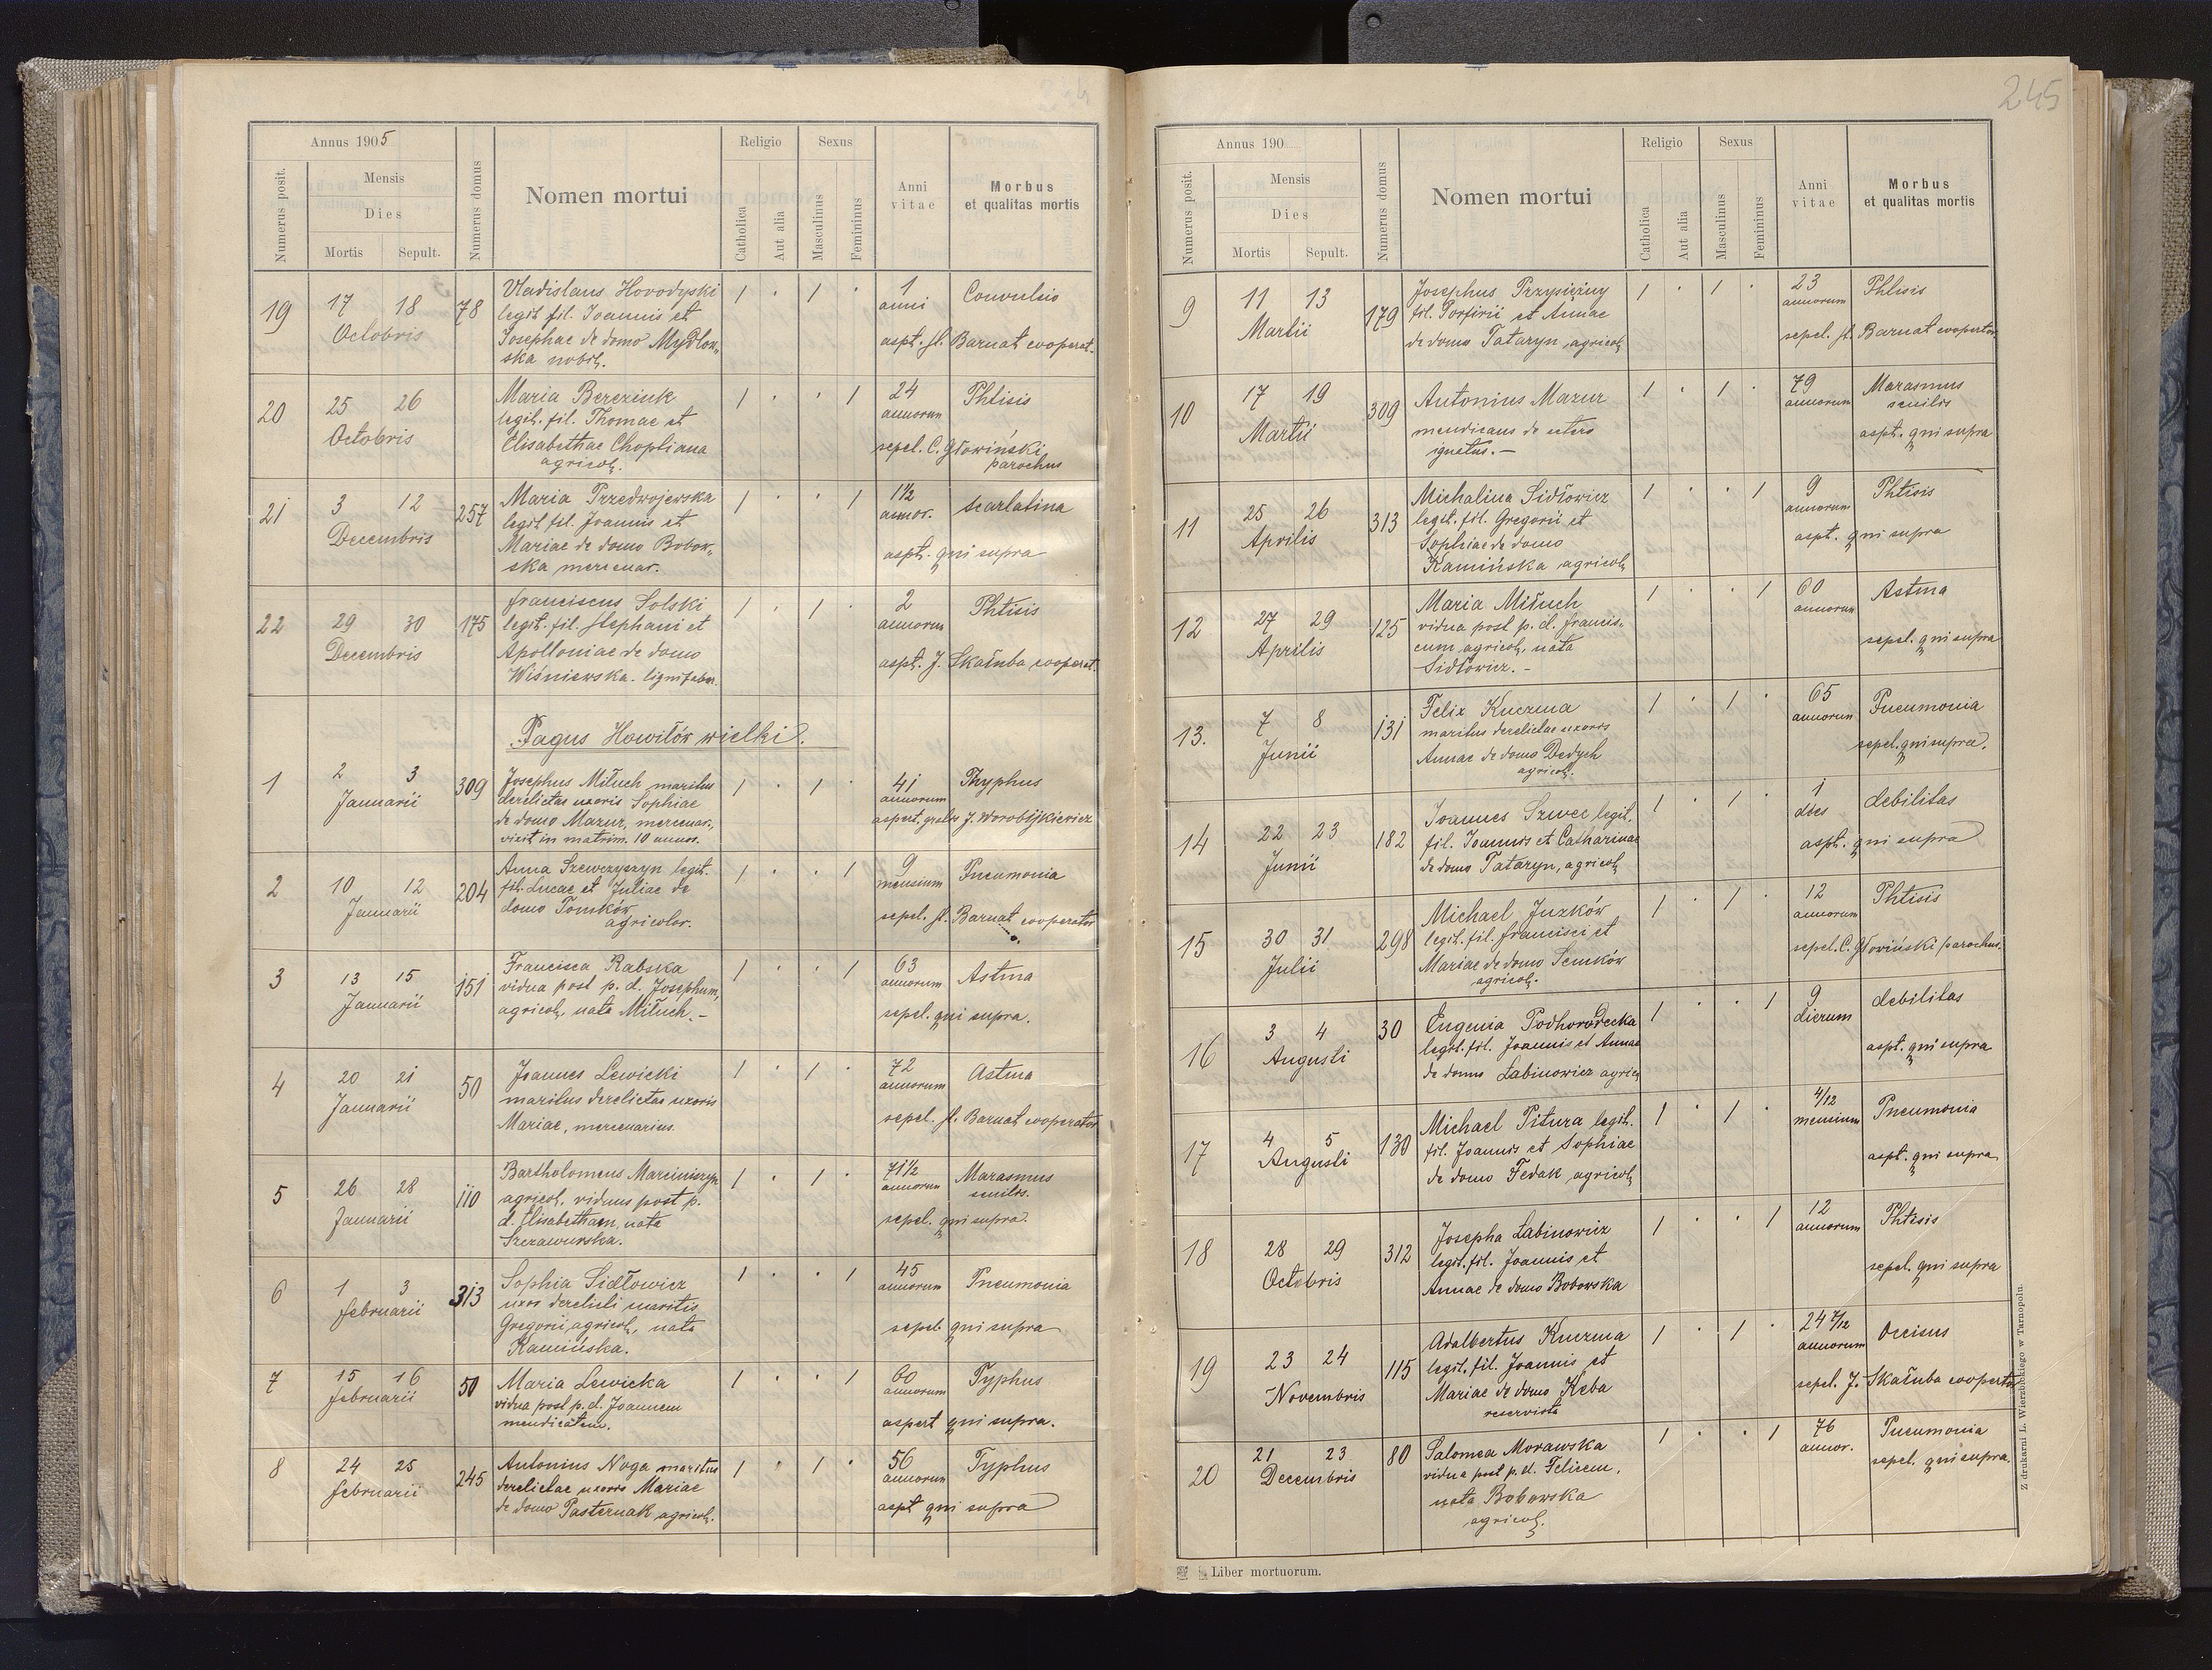 245
Annus 1905
Numerus posit.
Mensis
Dies
Mortis Sepult.
Numerus domus
Nomen mortui
Religio
Catholica
Aut alia
Sexus
Masculinus
Femininus
Anni
vitae
Morbus
et qualitas mortis
19 17 18 Octobris 78
Vladislaus Horodyski
legit fil. Joannis et
Josephae de domo Mydłow„
ska nobil.
1 · 1 ·
1
anni
Convulsio
aspt. st. Barnat cooperat.
20 25 26 Octobris
Maria Bereziuk
legit. fil. Thomae et
Elisabethae Chopliana
agricol.
1 · · 1
24
annorum
Phtisis
sepel. C. Głowiński
parochus
21 3 12 Decembris 257
Maria Przedwojewska
legit fil. Joannis et
Mariae de domo Bobow„
ska mercenar.
1 · · 1
1½
annor.
scarlatina
aspt. qui supra
22 29 30 Decembris 175
Franciscus Solski
legit. fil. Stephani et
Apolloniae de domo
Wiśniewska. lignifaber.
1 · 1 ·
2
annorum
Phtisis
aspt. J. Skałuba cooperat.
Pagus Howiłów wielki.
1 2 3 Januarii 309
Josephus Miłuch maritus
derelictae uxoris Sophiae
de domo Mazur, mercenar.,
vixit in matrim. 10 annos.
1 · 1 ·
41
annorum
Thyphus
aspert. J. Worobijkiewicz
2 10 12 Januarii 204
Anna Szewczyszyn legit.
fil. Lucae et Juliae de
domo Tomków
agricolor.
1 · · 1
9
mensium
Pneumonia
sepel. st. Barnat cooperator
3 13 15 Januarii 151
Francisca Rabska
vidua post p. d. Josephum,
agricol, nata Miłuch. –
1 · · 1
63
annorum
Astma
sepel. qui supra.
4 20 21 Januarii 50
Joannes Lewicki
maritus derelictae uxoris
Mariae, mercenarius.
1 · 1 ·
72
annorum
Astma
sepel. st. Barnat cooperator
5 26 28 Januarii 110
Bartholomeus Marciniszyn
agricol. viduus post p.
d. Elisabetham, nata
Szczawurska.
1 · 1 ·
71½
annorum
Marasmus
senilis.
sepel. qui supra.
6 1 3 Februarii 313
Sophia Sidłowicz
uxor derelicti maritis
Gregorii, agricol, nata
Kamińska.
1 · · 1
45
annorum
Pneumonia
sepel. qui supra
7 15 16 Februarii 50
Maria Lewicka
vidua post p. d. Joannem
mendicatem.
1 · · 1
60
annorum
Typhus
aspert qui supra.
8 24 25 Februarii 245
Antonius Noga maritus
derelictae uxoris Mariae
de domo Pasternak agricol.
1 · 1 ·
56
annorum
Typhus
aspt qui supra
Annus 190
Numerus posit.
Mensis
Dies
Mortis Sepult.
Numerus domus
Nomen mortui
Religio
Catholica
Aut alia
Sexus
Masculinus
Femininus
Anni
vitae
Morbus
et qualitas mortis
9 11 13 Martii 179
Josephus Przysiężny
fil. Porfirii et Annae
de domo Tataryn, agricol
1 · 1 ·
23
annorum
Phtisis
sepel. st. Barnat cooperator
10 17 19 Martii 309
Antonius Mazur
mendicans de utero
ignotus. –
1 · 1 ·
79
annorum
Marasmus
senilis
aspt. qui supra
11 25 26 Aprilis 313
Michalina Sidłowicz
legit. fil. Gregorii et
Sophiae de domo
Kamińska agricol
1 · · 1
9
annorum
Phtisis
aspt. qui supra
12 27 29 Aprilis 125
Maria Miłuch
vidua post p. d. Francis„
cum, agricol, nata
Sidłowicz. –
1 · · 1
60
annorum
Astma
sepel. qui supra
13. 7 8 Junii 131
Felix Kuczma
maritus derelictae uxoris
Annae de domo Dedych
agricol.
1 · 1 ·
65
annorum
Pneumonia
sepel. qui supra.
14 22 23 Junii 182
Joannes Szwec legit.
fil. Joannis et Catharinae
de domo Tataryn, agricol
1 · 1 ·
1
dies
debilitas
aspt. qui supra
15 30 31 Julii 298
Michael Juzków
legit. fil. Francisci et
Mariae de domo Semków
agricol.
1 · 1 ·
12
annorum
Phtisis
sepel. C. Głowiński parochus.
16 3 4 Augusti 30
Eugenia Podhorodecka
legit. fil. Joannis et Annae
de domo Labinowicz agricol
1 · · 1
9
dierum
debilitas
aspt. qui supra
17 4 5 Augusti 130
Michael Pitura legit.
fil. Joannis et Sophiae
de domo Fedak agricol
1 · 1 ·
4/12
mensium
Pneumonia
aspt. qui supra
18 28 29 Octobris 312
Josepha Labinowicz
legit. fil. Joannis et
Annae de domo Bobowska
1 · · 1
12
annorum
Phtisis
sepel. qui supra
19 23 24 Novembris 115
Adalbertus Kuczma
legit. fil. Joannis et
Mariae de domo Keba
reservista
1 · 1 ·
24 7/12
annorum
Occisus
sepel. J. Skałuba cooperator
20 21 23 Decembris 80
Salomea Morawska
vidua post p. d. Felicem,
nata Bobowska
agricol.
1 · · 1
76
annor.
Pneumonia
sepel. qui supra.
Liber mortuorum.
Z drukarni L. Wierzbickiego w Tarnopolu.